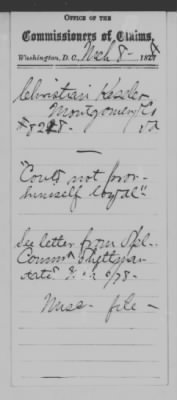 OFFICE OF THE
Commissioners of Claims,
Washington, D. C., Mch 8 - 1878
Christian Kesler
Montgomery Co
#8218 - Va
"Could not prove
himself loyal"
See letter from Spl.
Comm
dated
Misc - file -